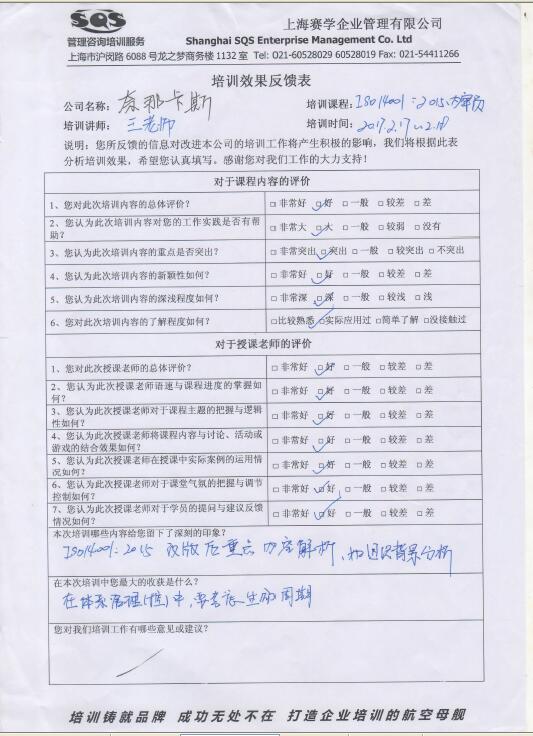 SQS
管理咨询培训服务
上海赛学企业管理有限公司
Shanghai SQS Enterprise Management Co. Ltd
上海市沪闵路 6088 号龙之梦商务楼 1132 室 Tel: 021-60528029 60528019 Fax: 021-54411266
培训效果反馈表
公司名称：奈那卡斯 培训课程：ISO14001：2015内审员
培训讲师：王老师 培训时间：2017.2.17~2.18
说明：您所反馈的信息对改进本公司的培训工作将产生积极的影响，我们将根据此表
分析培训效果，希望您认真填写。感谢您对我们工作的大力支持！
对于课程内容的评价
1、您对此次培训内容的总体评价？ □ 非常好 □ 好 □ 一般 □ 较差 □ 差
2、您认为此次培训内容对您的工作实践是否有帮
助？ □ 非常大 □ 大 □ 一般 □ 较弱 □ 没有
3、您认为此次培训内容的重点是否突出？ □ 非常突出 □ 突出 □ 一般 □ 较突出 □ 不突出
4、您认为此次培训内容的新颖性如何？ □ 非常好 □ 好 □ 一般 □ 较差 □ 差
5、您认为此次培训内容的深浅程度如何？ □ 非常深 □ 深 □ 一般 □ 较浅 □ 浅
6、您对此次培训内容的了解程度如何？ □比较熟悉 □实际应用过 □简单了解 □没接触过
对于授课老师的评价
1、您对此次授课老师的总体评价？ □ 非常好 □ 好 □ 一般 □ 较差 □ 差
2、您认为此次授课老师语速与课程进度的掌握如
何？ □ 非常好 □ 好 □ 一般 □ 较差 □ 差
3、您认为此次授课老师对于课程主题的把握与逻辑
性如何？ □ 非常好 □ 好 □ 一般 □ 较差 □ 差
4、您认为此次授课老师将课程内容与讨论、活动或
游戏的结合效果如何？ □ 非常好 □ 好 □ 一般 □ 较差 □ 差
5、您认为此次授课老师在授课中实际案例的运用情
况如何？ □ 非常好 □ 好 □ 一般 □ 较差 □ 差
6、您认为此次授课老师对于课堂气氛的把握与调节
控制如何？ □ 非常好 □ 好 □ 一般 □ 较差 □ 差
7、您认为此次授课老师对于学员的提问与建议反馈
情况如何？ □ 非常好 □ 好 □ 一般 □ 较差 □ 差
本次培训哪些内容给您留下了深刻的印象？
ISO14001：2015 改版后重点内容解析，相因况背景分析
在本次培训中您最大的收获是什么？
在体系管理中，要考虑生命周期
您对我们培训工作有哪些意见或建议？
培训铸就品牌 成功无处不在 打造企业培训的航空母舰